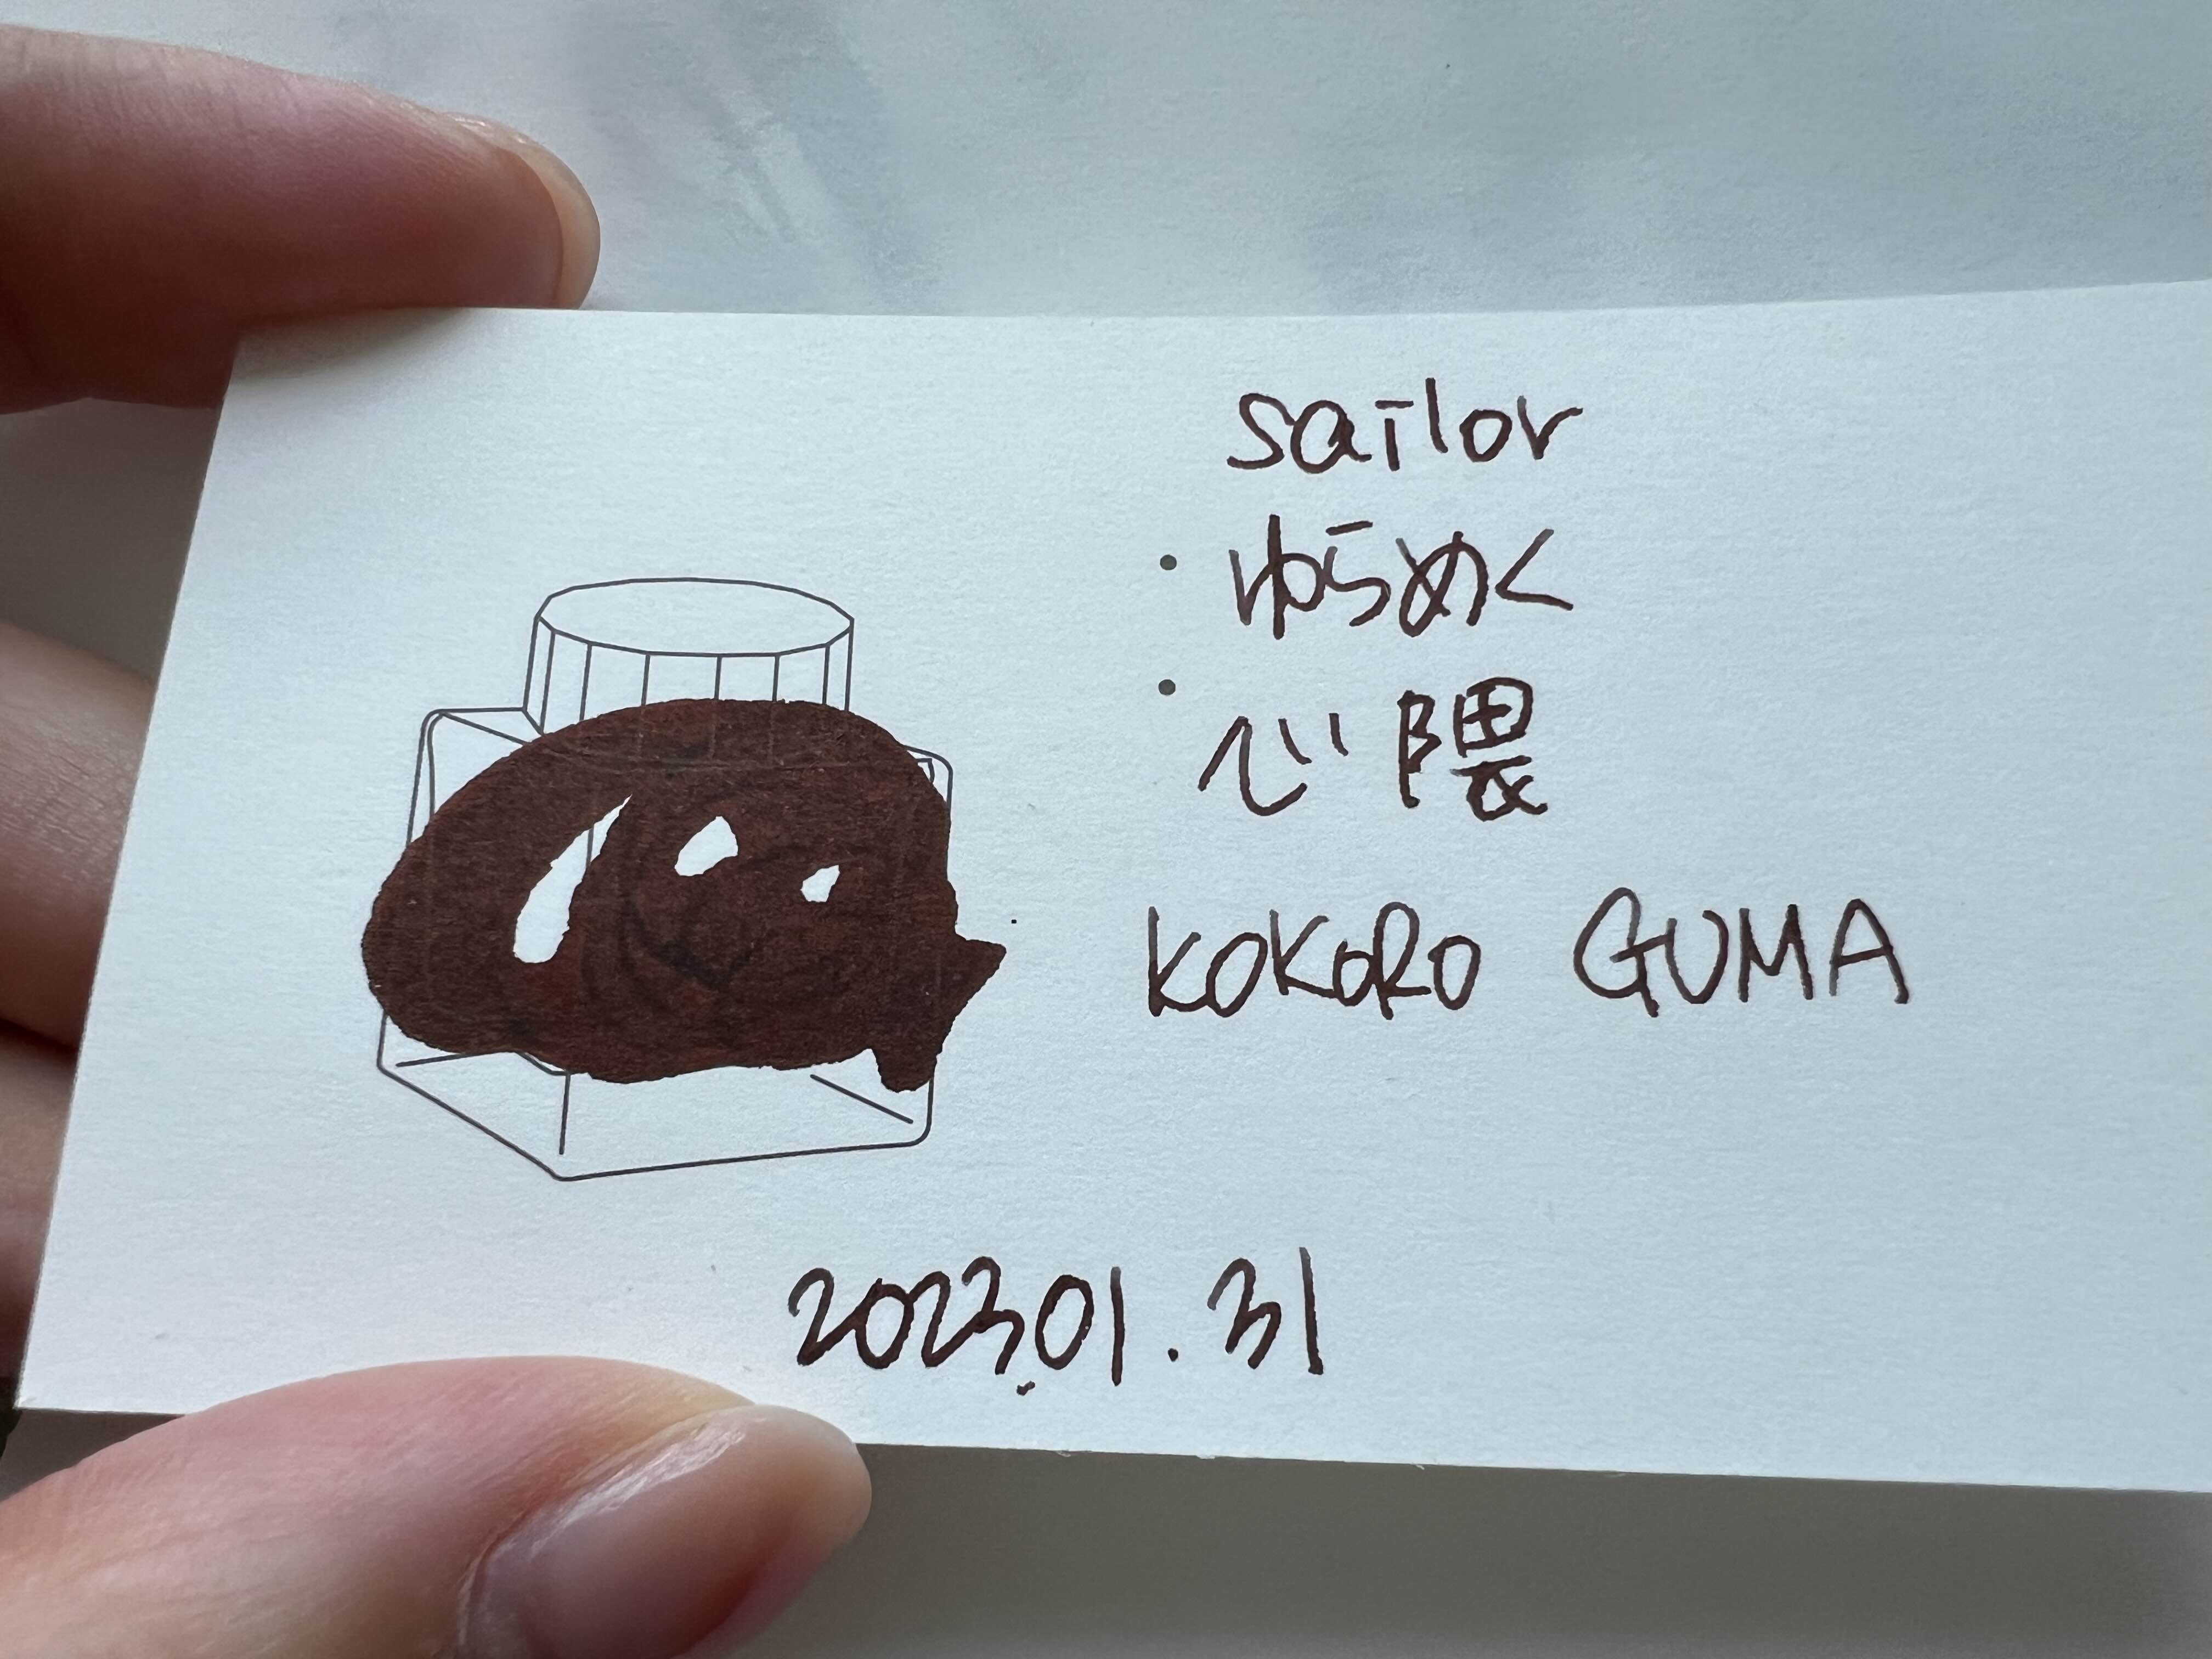 sailor
・ゆらめく
・心隈
KOKORO GUMA
2023.01.31